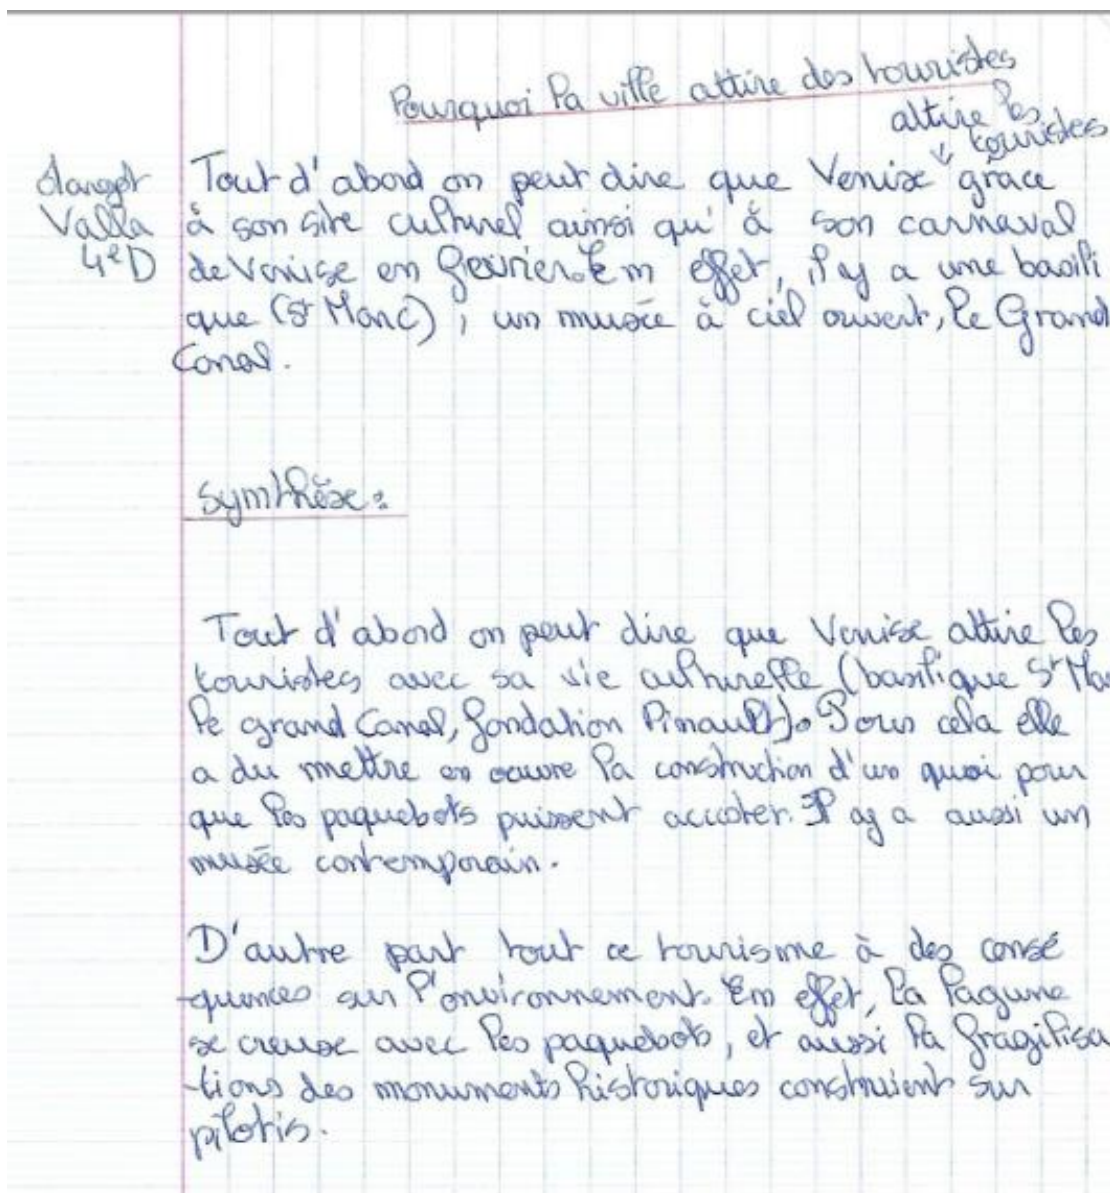 Pourquoi la ville attire des touristes
attire les
touristes
Valla
4eD
Tout d'abord on peut dire que Venise grace
à son site culturel ainsi qu'à son carnaval
de Venise en fevrier. En effet, il y a une basili
que (St Marc), un musée à ciel ouvert, le Grand
Canal.
Synthèse :
Tout d'abord on peut dire que Venise attire les
touristes avec sa vie culturelle (basilique St Mar
le grand Canal, fondation Pinault). Pour cela elle
a du mettre en oeuvre la construction d'un quai pour
que les paquebots puissent accoster. Il y a aussi un
musée contemporain.
D'autre part tout ce tourisme à des consé
-quences sur l'environnement. En effet, la lagune
se creuse avec les paquebots, et aussi la fragilisa
-tions des monuments historiques construient sur
pilotis.